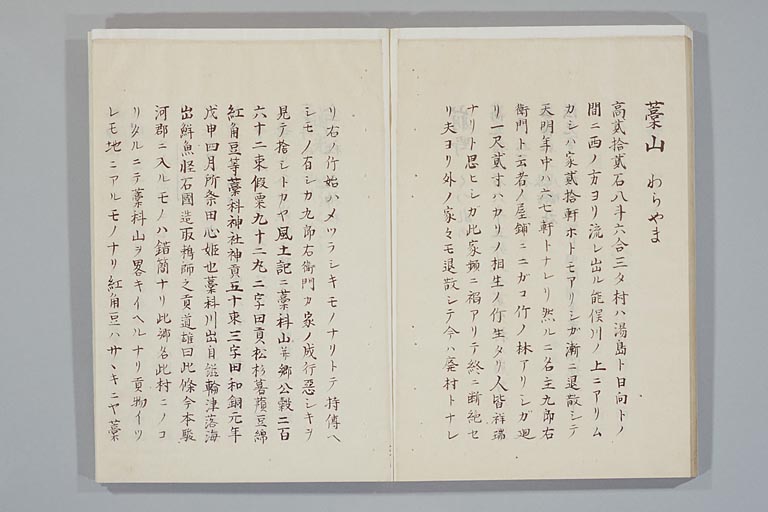 藁山 わらやま
高貳拾貳石八斗六合三夕村ハ湯島ト日向トノ
間ニ西ノ方ヨリ流レ出ル能俣川ノ上ニアリム
カシハ家貳拾軒ホトモアリシガ漸ニ退散シテ
天明年中ハ六七軒トナレリ然ルニ名主九郎右
衛門ト云者ノ屋鋪ニニガコ竹ノ林アリシガ廻
リ一尺貳寸ハカリノ相生ノ竹生タリ人皆祥瑞
ナリト思ヒシガ此家頻ニ禍アリテ終ニ断絶セ
リ夫ヨリ外ノ家々モ退散シテ今ハ廃村トナレ
リ右ノ竹始ハメツラシキモノナリトテ持傳ヘ
シモノ百シカ九郎右衛門カ家ノ成行惡シキヲ
見テ捨シトカヤ風土記ニ藁科山並郷公穀二百
六十二束假粟九十二九ニ字田貢松杉葛蘋豆綿
紅角豆等藁科神社神貢五十束三字田和銅元年
戊申四月所祭田心姫也藁科川出自鎰輪津落海
出鮮魚怪石國造取鵜師之貢道雄曰此條今本駿
河郡ニ入ルモノハ錯簡ナリ此郷名此村ニノコ
リタルニテ藁科山ヲ畧キイヘルナリ貢物イツ
レモ地ニアルモノナリ紅角豆ハサヽキニヤ藁